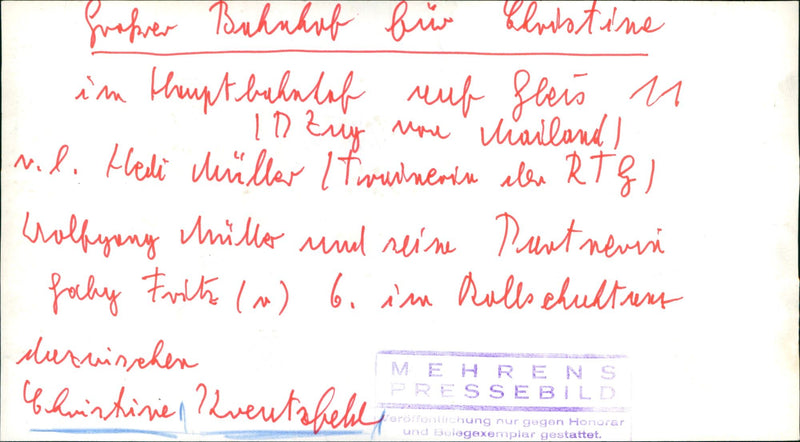 Großer Bahnhof für Christine
im Hauptbahnhof auf Gleis 11
(D Zug von Mailand)
v. l. Hedi Müller (Trainerin der RTG)
Wolfgang Müller und seine Partnerin
Gaby Fritz (r) 6. im Rollschuhtanz
dazwischen
Christine Kreutzfeldt
MEHRENS
PRESSEBILD
Veröffentlichung nur gegen Honorar
und Belegexemplar gestattet.